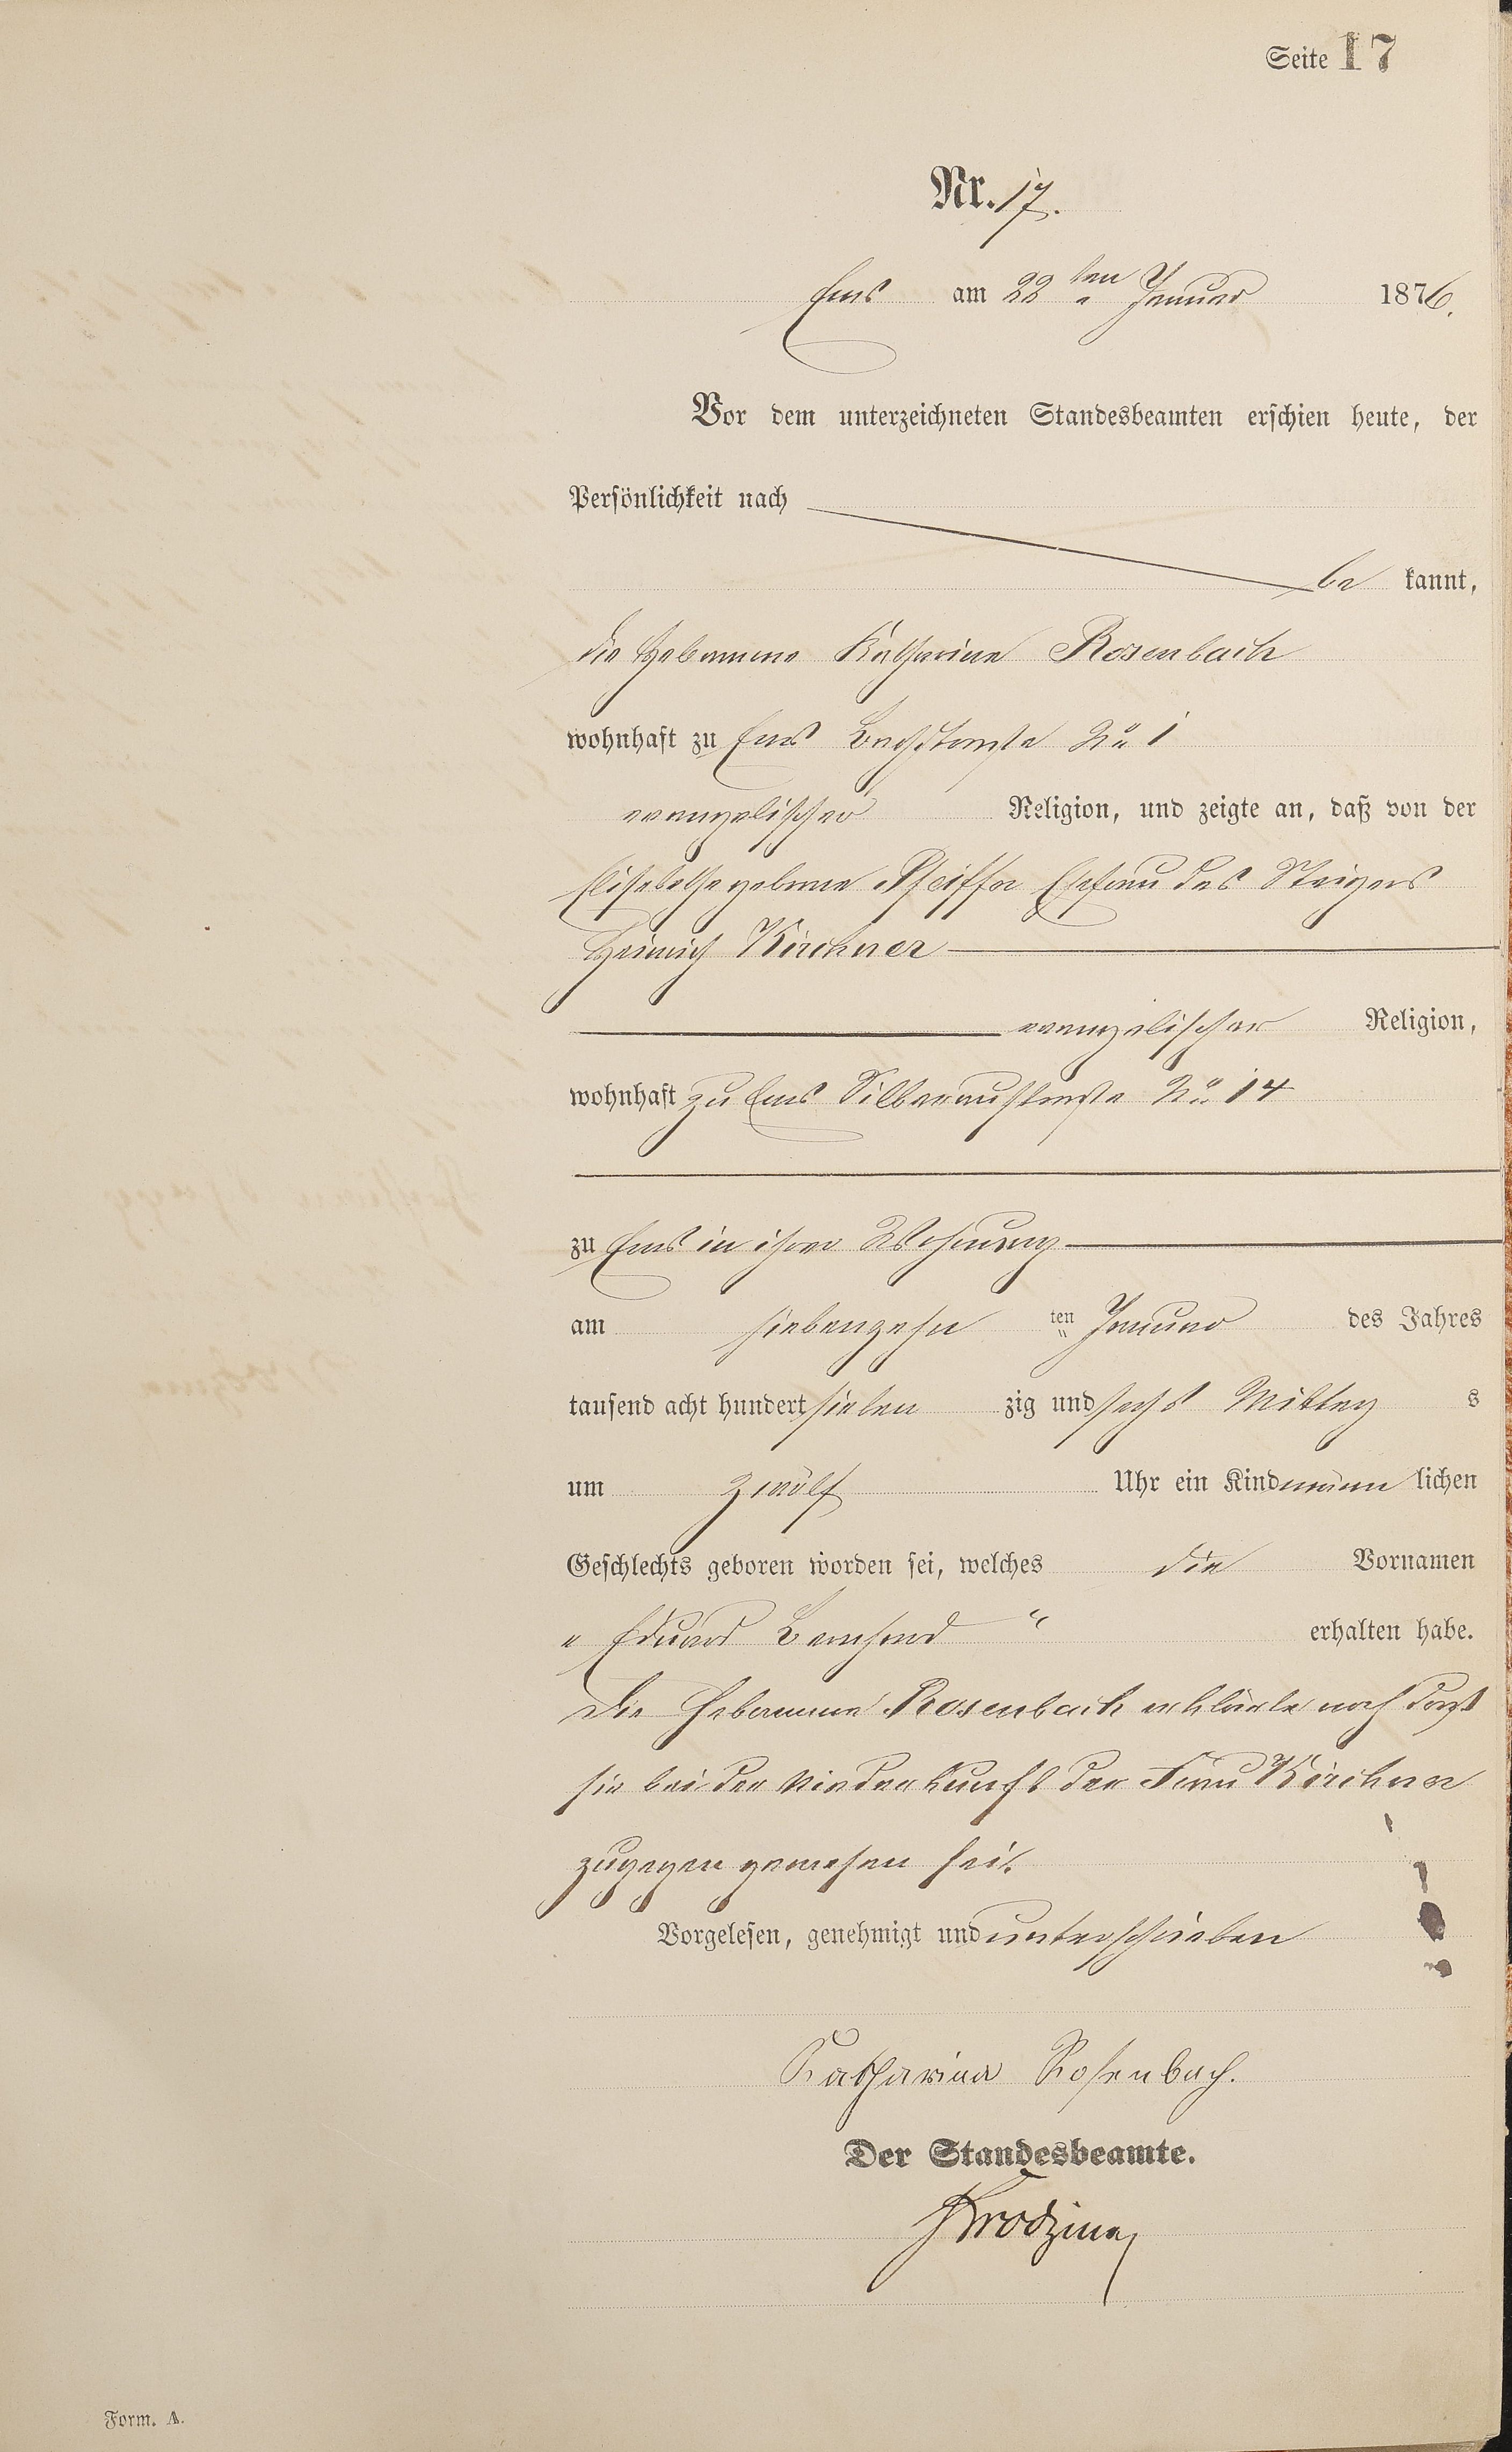 Seite 17
Nr. 17.
Ems am 22ten Januar 1876.
Vor dem unterzeichneten Standesbeamten erschien heute, der
Persönlichkeit nach
be kannt,
die Hebamme Katharina Rosenbach
wohnhaft zu Ems Bachstraße No 1
evangelischer Religion, und zeigte an, daß von der
Elisabetha geborne Pfeiffer Ehefrau des Steigers
Heinrich Kirchner
evangelischer Religion,
wohnhaft zu Ems Silberaustraße No 14
zu Ems in ihrer Wohnung
am siebenzehn ten Januar des Jahres
tausend acht hundert sieben zig und sechs Mittag s
um zwölf Uhr ein Kind männ lichen
Geschlechts geboren worden sei, welches die Vornamen
„ Eduard Bernhard “ erhalten habe.
Die Hebamme Rosenbach erklärte noch daß
sie bei der Niederkunft der Frau Kirchner
zugegen gewesen sei.
Vorgelesen, genehmigt und unterschrieben
Katharina Rosenbach.
Der Standesbeamte.
Form. A.